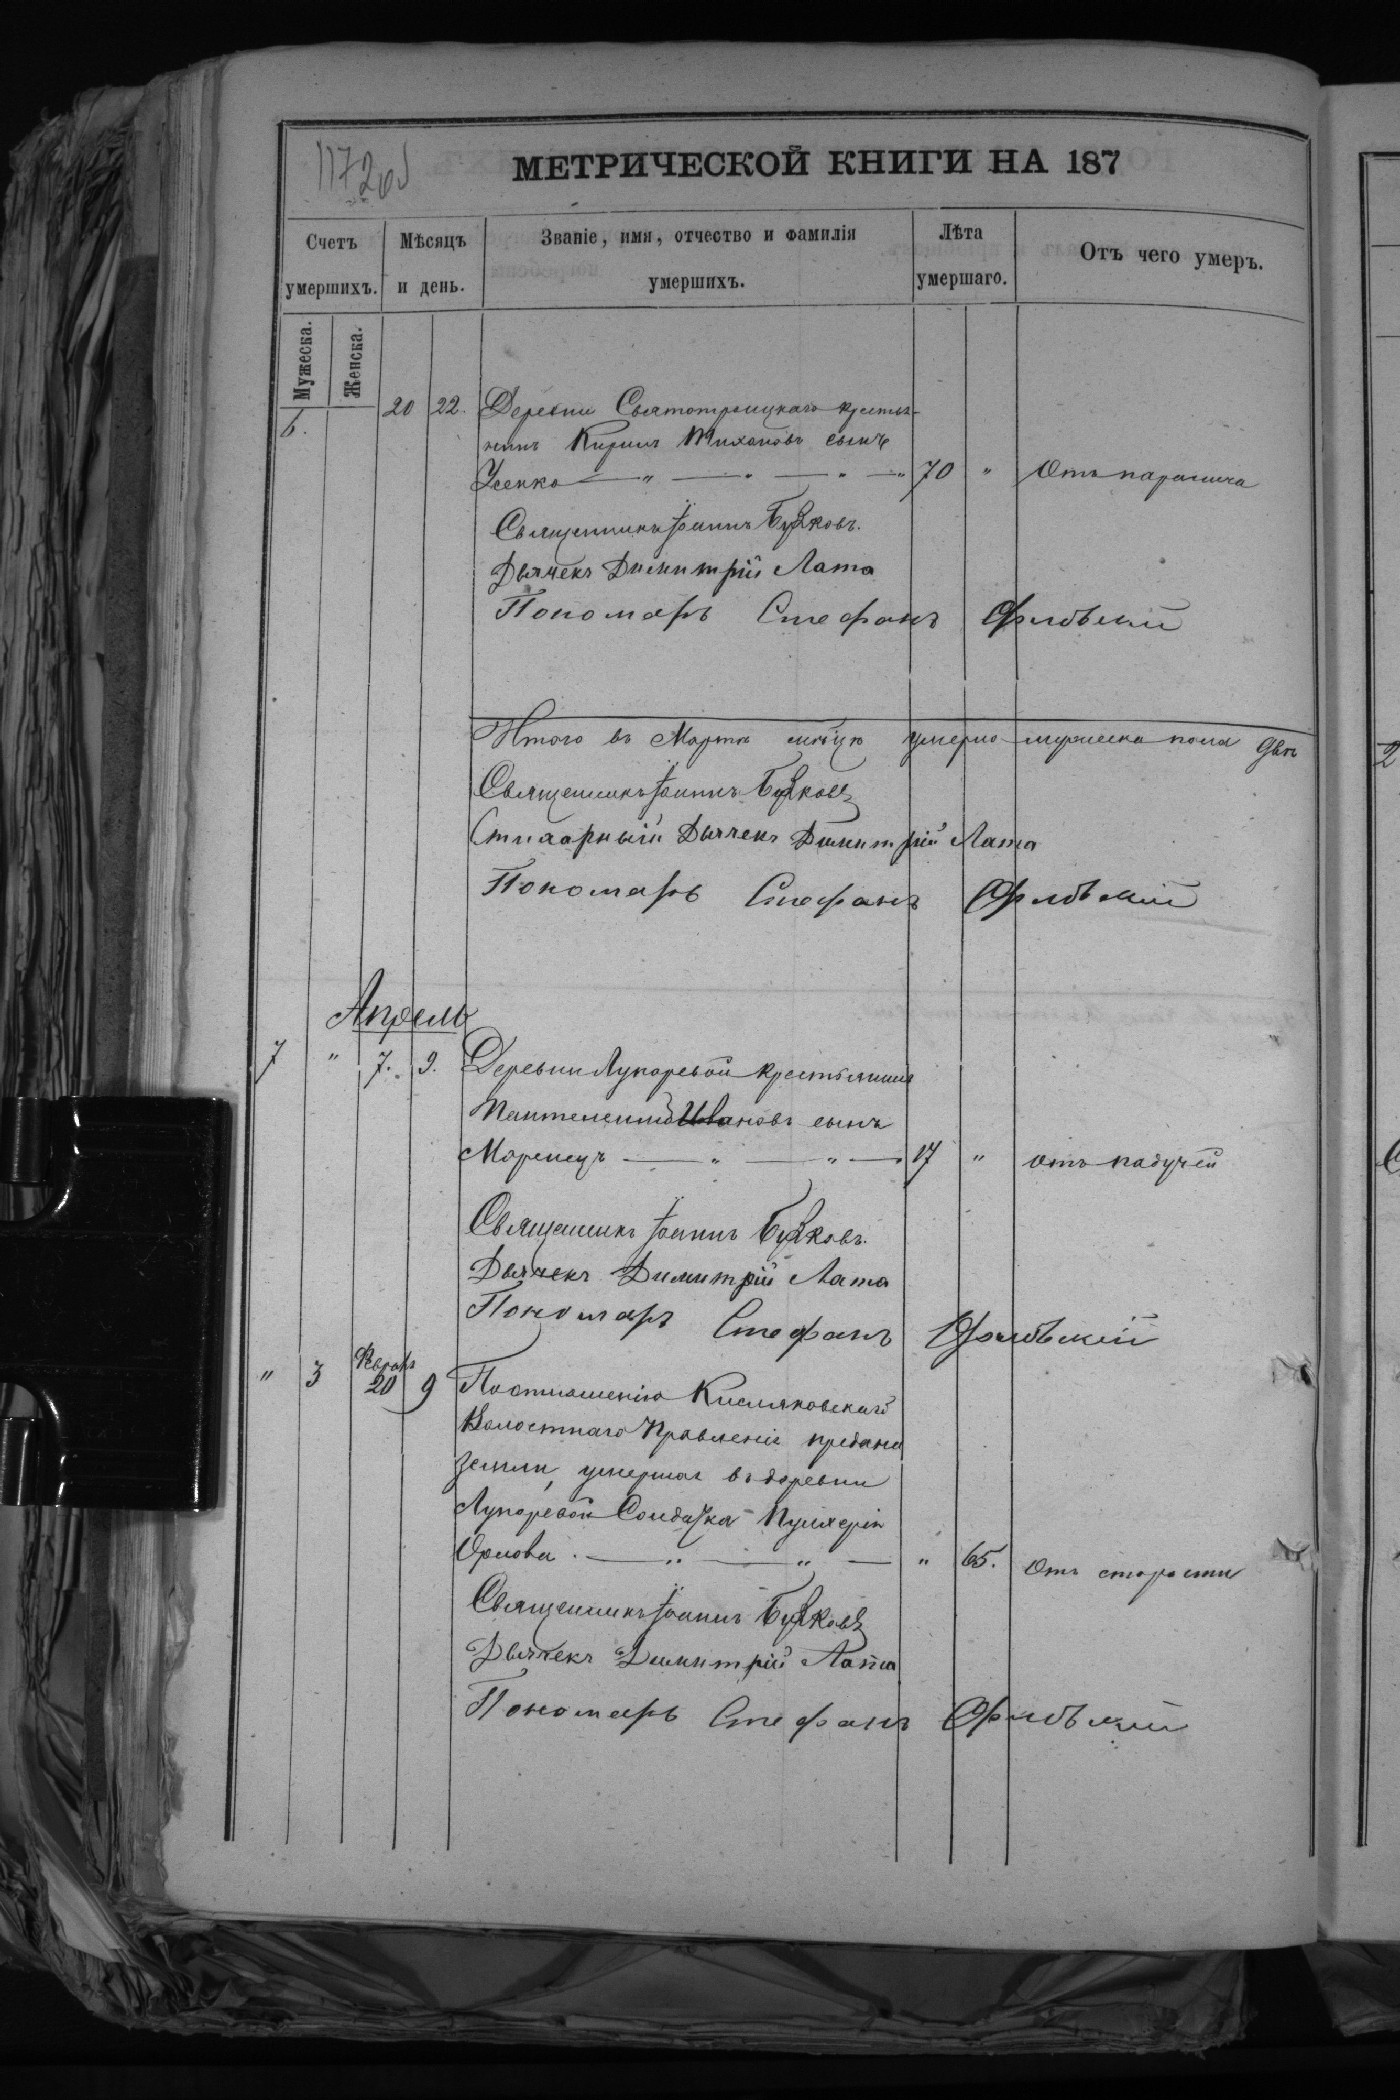 МЕТРИЧЕСКОЙ КНИГИ НА 187
Счетъ умершихъ. Мѣсяцъ и день. Званіе, имя, отчество и фамилія умершихъ. Лѣта умершаго. Отъ чего умеръ.
Мужеска. Женска.
6. 20 22. Деревни Святотроицкаго крестья-
нинъ Кирилъ Тихоновъ сынъ
Усенко — " — " — " — " 70 " Отъ паралича
Священникъ Іоаннъ
Дьячекъ Димитрій Лата
Пономарь Стефанъ
Итого въ Мартѣ мѣсяцѣ умерло мужеска пола два
Священникъ Іоаннъ
Стихарный Дьячекъ Димитрій Лата
Пономарь Стефанъ
Апрель
7 " 7. 9. Деревни Лукаревой крестьянинъ
Пантелеимонъ Ивановъ сынъ
Моренецъ — " — " — 17 " отъ падучей
Священникъ Іоаннъ
Дьячекъ Димитрій Лата
Пономарь Стефанъ
" 3 20 9 По отношенію Кисляковскаго
Волостнаго Правленія предана
земли, умершая въ деревни
Лукаревой Солдатка Пулхерія
Орлова. — " — " — " 65. Отъ старости
Священникъ Іоаннъ
Дьячекъ Димитрій Лата
Пономарь Стефанъ